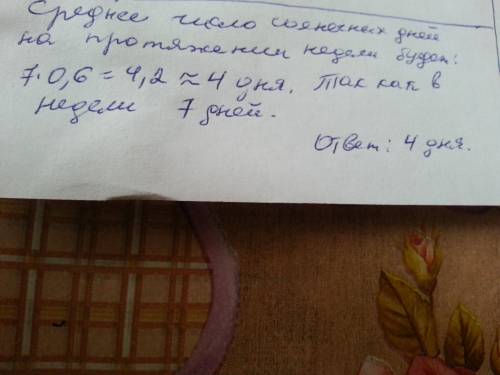 Среднее число солнечных дней
на протяжении недели будет:
7·0,6 = 4,2 ≈ 4 дня. Так как в
недели 7 дней.
Ответ: 4 дня.